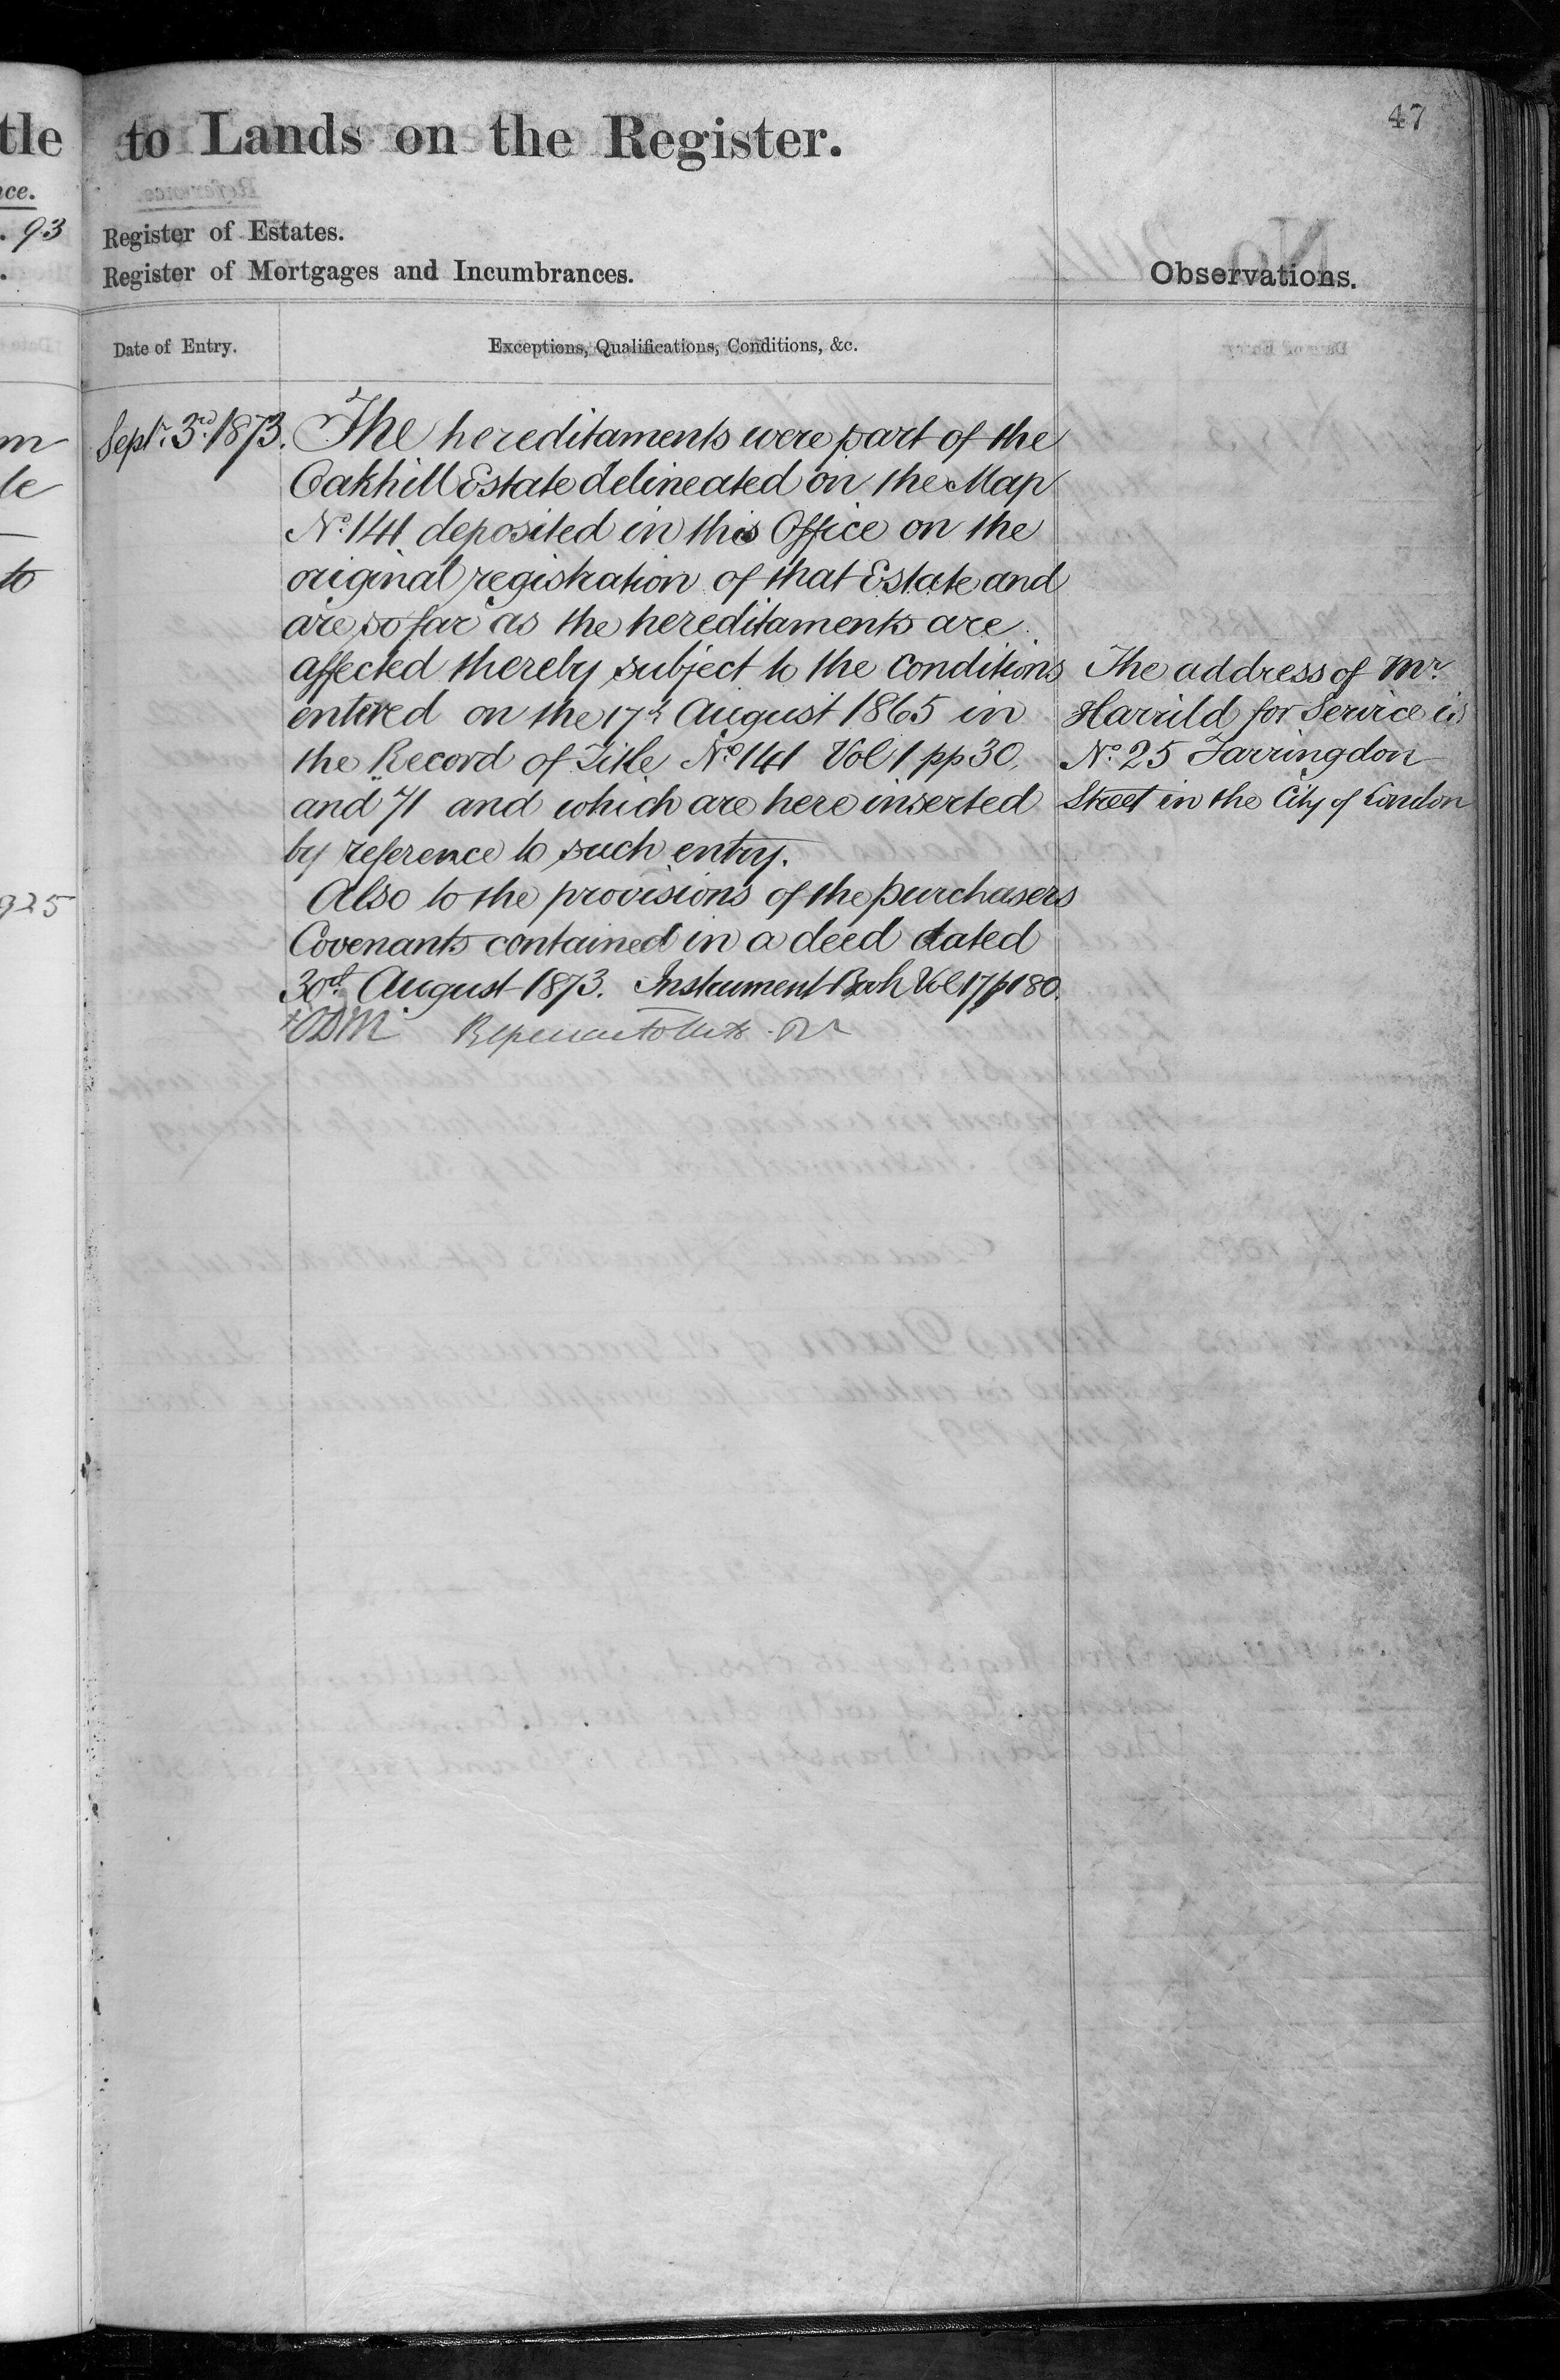 47
tle to Lands on the Register.
nce.
. 93 Register of Estates.
Register of Mortgages and Incumbrances.
Observations.
Date of Entry. Exceptions, Qualifications, Conditions, &c.
Septr. 3rd. 1873. The hereditaments were part of the
Oakhill Estate delineated on the Map
No. 141 deposited in this Office on the
original registration of that Estate and
are so far as the hereditaments are
affected thereby subject to the conditions
entered on the 17th August 1865 in
the Record of Title No. 141 Vol 1 pp 30,
and 71 and which are here inserted
by reference to such entry.
Also to the provisions of the purchasers
Covenants contained in a deed dated
30th August 1873. Instrument Book Vol 17 p 180.
The address of Mr.
Harrild for Service is
No. 25 Farringdon
Street in the City of London
to
925